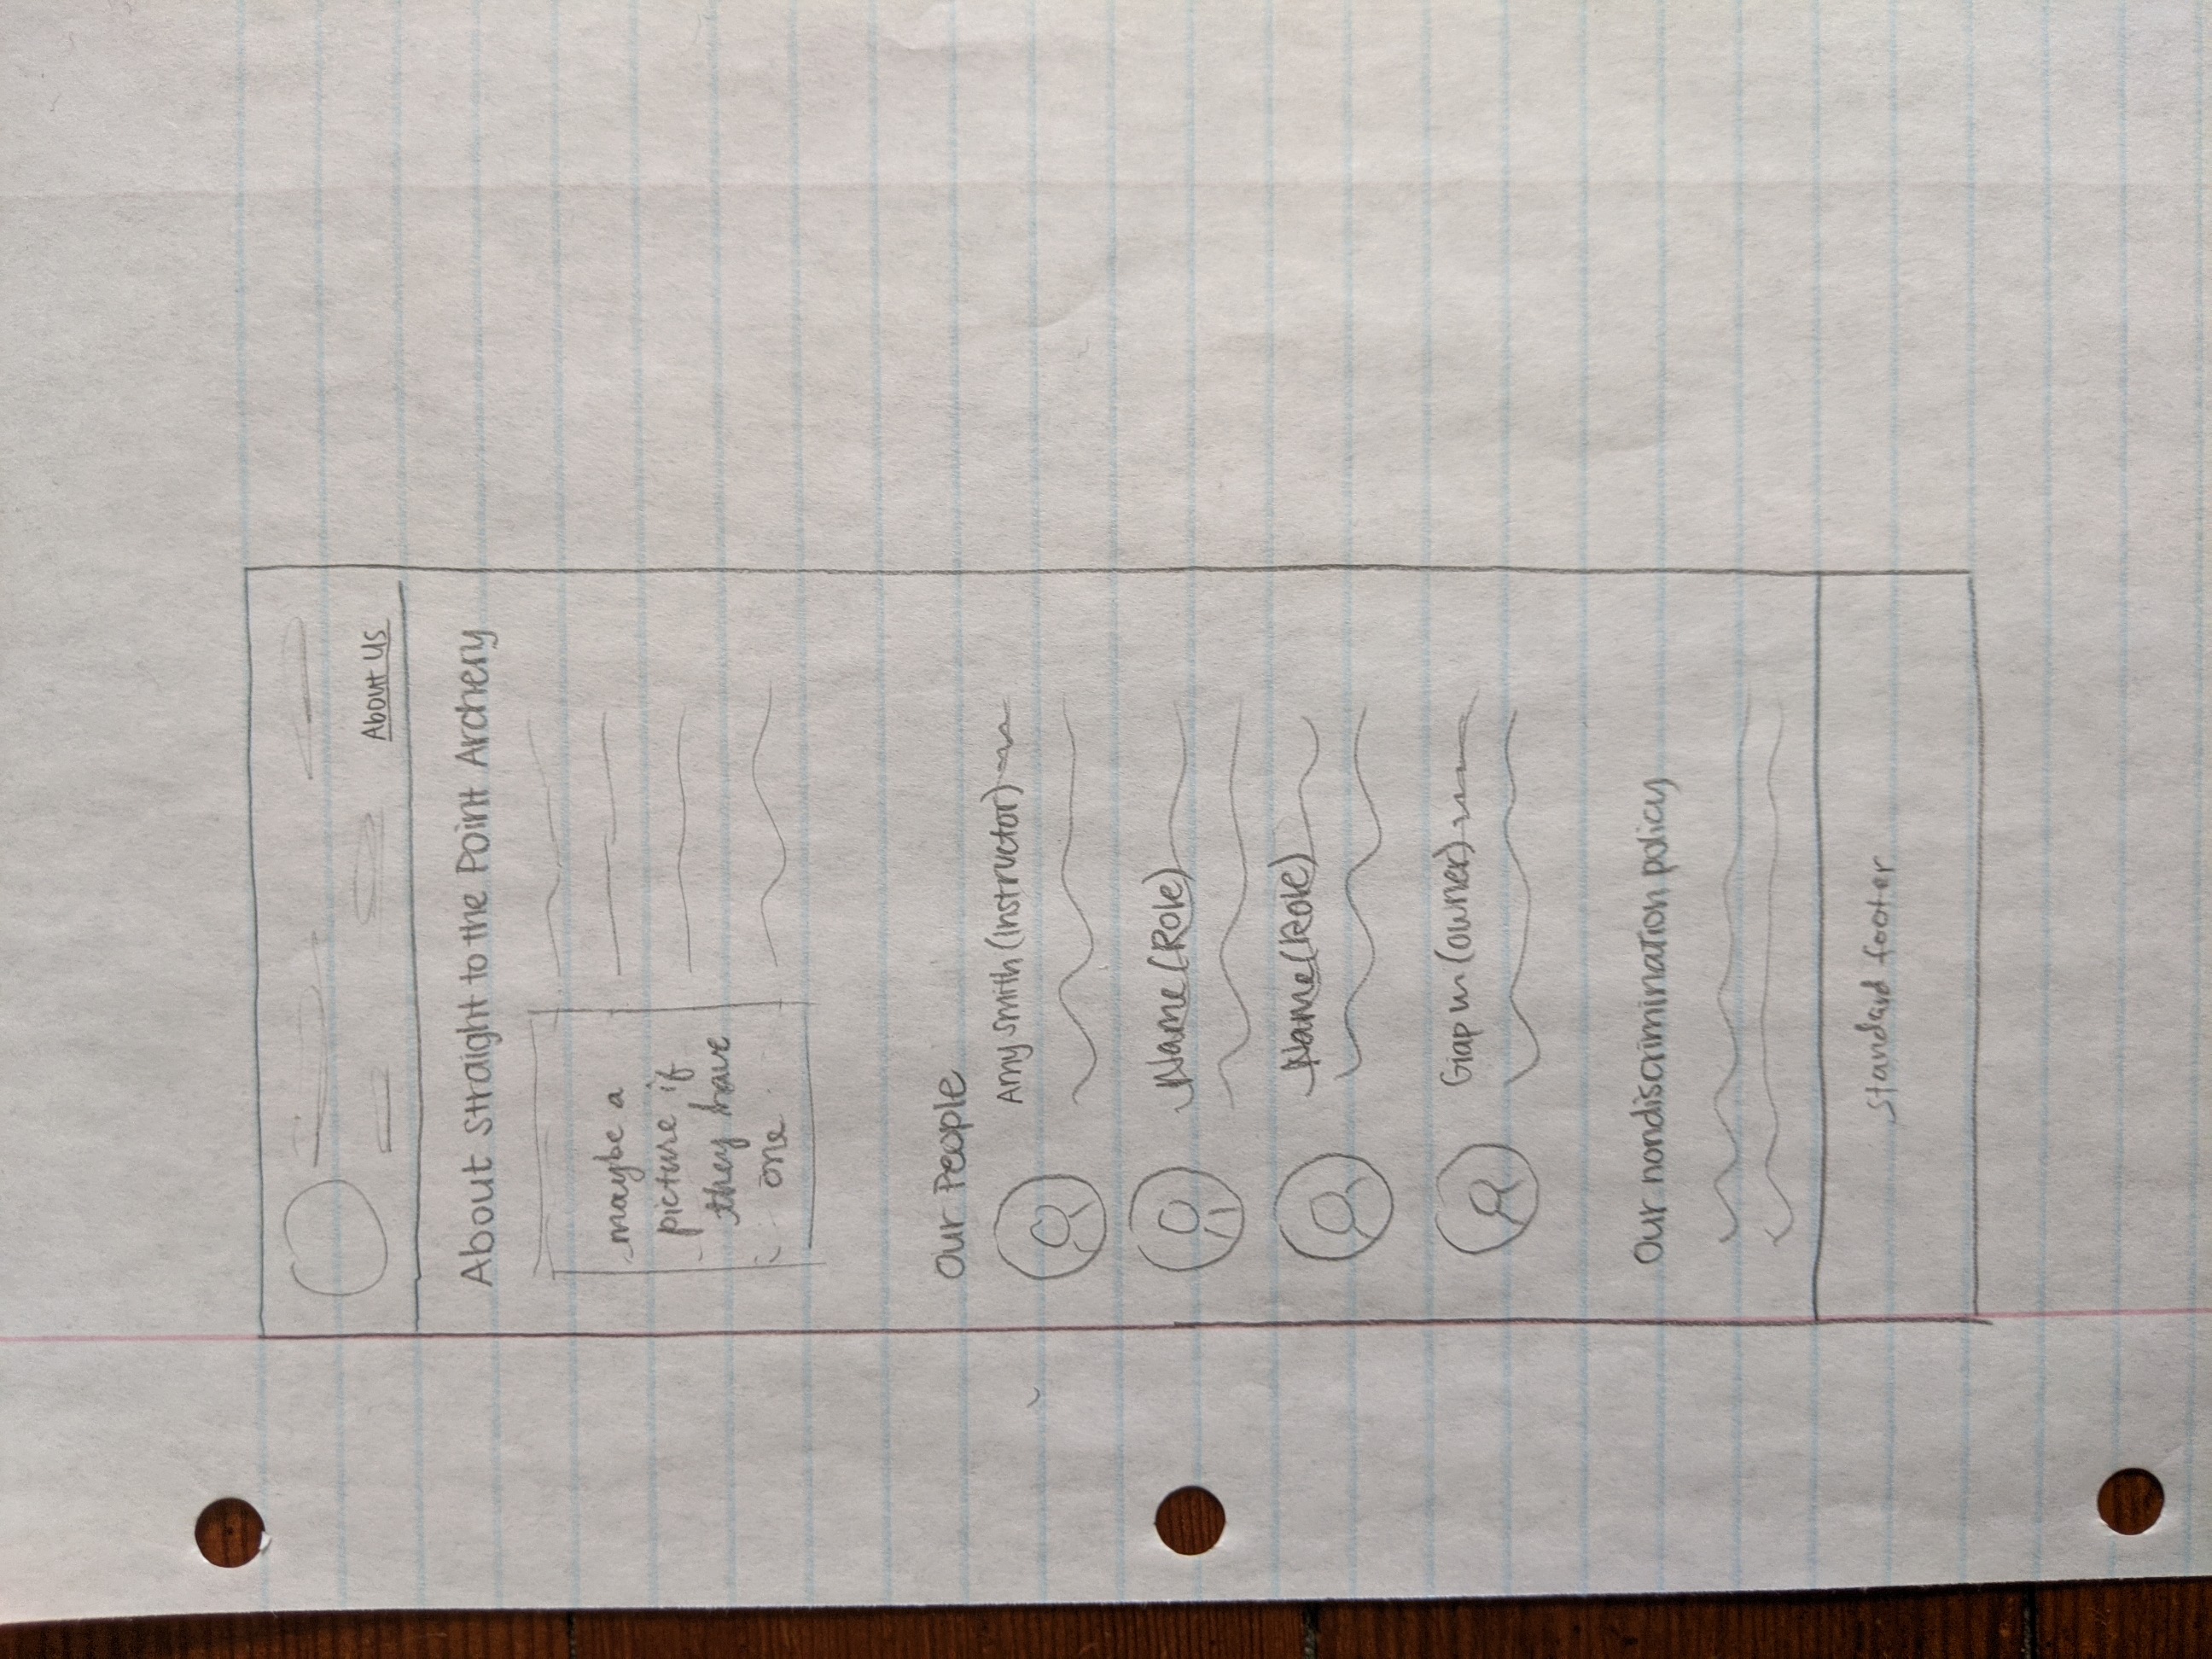 About Us
About Straight to the Point Archery
maybe a
picture if
they have
one
Our People
Amy Smith (Instructor)
Name (Role)
Name (Role)
(owner)
Our nondiscrimination policy
Standard footer